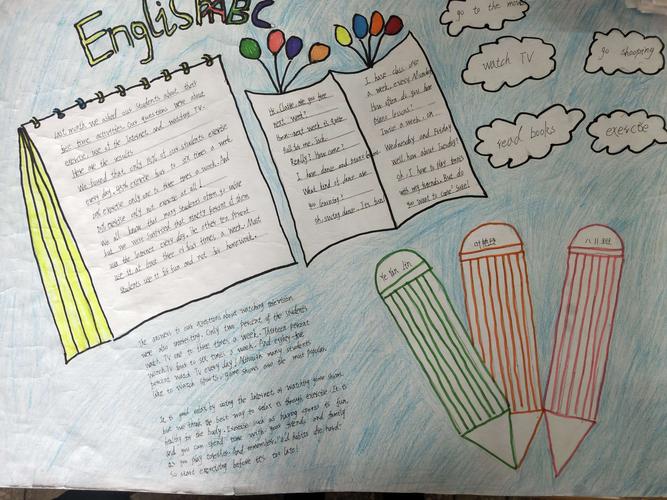 English ABC
go to the movies
watch TV
go shopping
read books
exercise
Last month we asked our students about their
free time activities. Our questions were about
exercise, use of the Internet and watching TV.
Here are the results.
We found that only of our students exercise
every day, four to six times a week.
exercise only one to three times a week. And
exercise at all!
We all know that many students often go online
but we were surprised that ninety percent of them
use the Internet every day. The other ten percent
use it at least three or four times a week. Most
students use it for fun and not for homework.
Hi, Claire, are you free
next week?
next week is quite
full for me, Jack.
Really? How come?
I have dance and piano
What kind of dance are
you learning?
Oh, swing dance. It's fun!
I have class once
a week, every Monday.
How often do you have
piano lessons?
Twice a week, on
Wednesday and Friday.
Well, how about Tuesday?
Oh, I have to play tennis
with my friends. But do
you want to come? Sure!
The answers to our questions about watching television
were also interesting. Only two percent of the students
watch TV one to three times a week. Thirteen percent
watch TV four to six times a week. And eighty-five
percent watch TV every day! Although many students
like to watch sports, game shows are the most popular.
It is good to relax by using the Internet or watching game shows,
but we think the best way to relax is through exercise. It is
healthy for the body. Exercise such as playing sports is fun,
and you can spend time with your friends and family
as you play together. And remember, "old habits die hard".
So start exercising before it's too late!
Ye Yan
八班